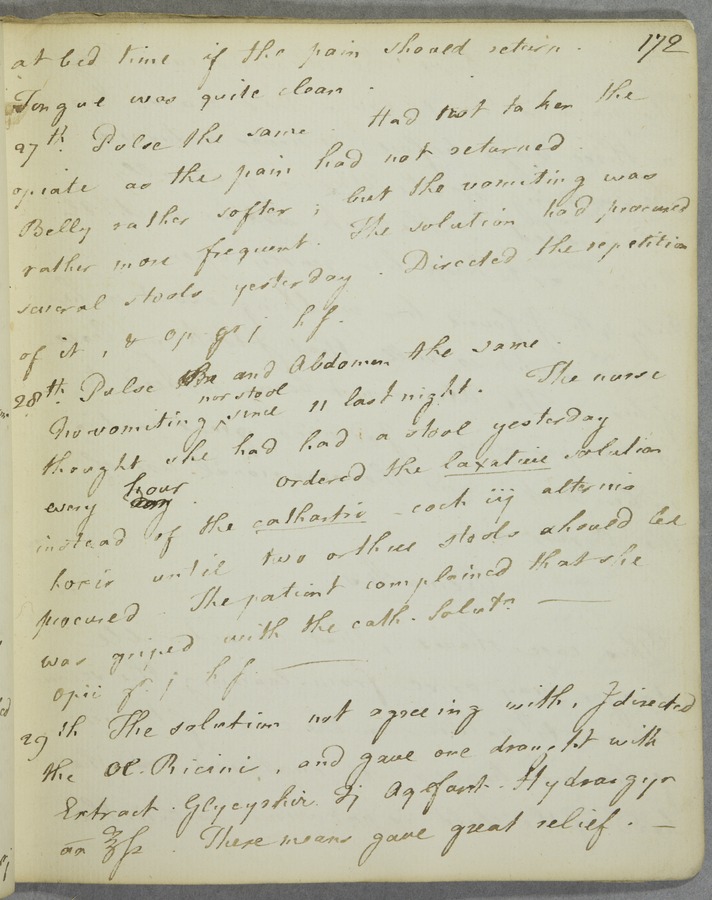 172
at bed time if the pain should return.
Tongue was quite clean.
27th. Pulse the same. Had not taken the
opiate as the pain had not returned.
Belly rather softer; but the vomiting was
rather more frequent. The solution had procured
several stools yesterday. Directed the repetition
of it, & op gr j h f.
28th. Pulse and Abdomen the same.
nor stool
No vomiting ^ since 11 last night. The nurse
thought she had had a stool yesterday
every hour. ordered the laxative solution
instead of the cathartic - coch iij alternis
horis until two or three stools should be
procured. The patient complained that she
was griped with the cath. Solutn —
opii gr. j h f. —
29th The solution not agreeing with, I directed
the Ol. Ricini, and gave one draught with
Extract. Glycyrhiz. ʒj Aq. font. Hydrargyr
an ʒſs. These means gave great relief. —